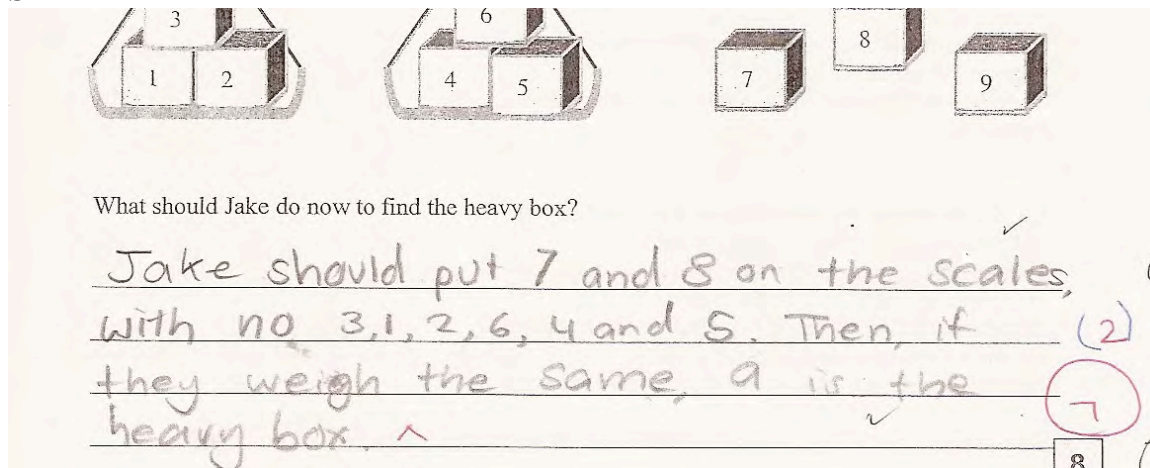 3
6
8
1 2
4 5
7
9
What should Jake do now to find the heavy box?
Jake should put 7 and 8 on the scales,
with no 3,1,2,6,4 and 5. Then, if
(2)
they weigh the same, 9 is the
7
heavy box. ^
8